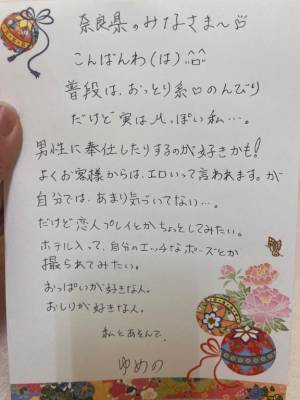 奈良県のみなさま〜
こんばんわ(は)
普段は、おっとり系♡のんびり
だけど実はMっぽい私…。
男性に奉仕したりするのが好きかも!
よくお客様からは、エロいって言われます。が
自分では、あまり気づいてない…。
だけど恋人プレイとかちょっとしてみたい。
ホテル入って、自分のエッチなポーズとか
撮られてみたい。
おっぱいが好きな人。
おしりが好きな人。
私とあそんで。
ゆめの